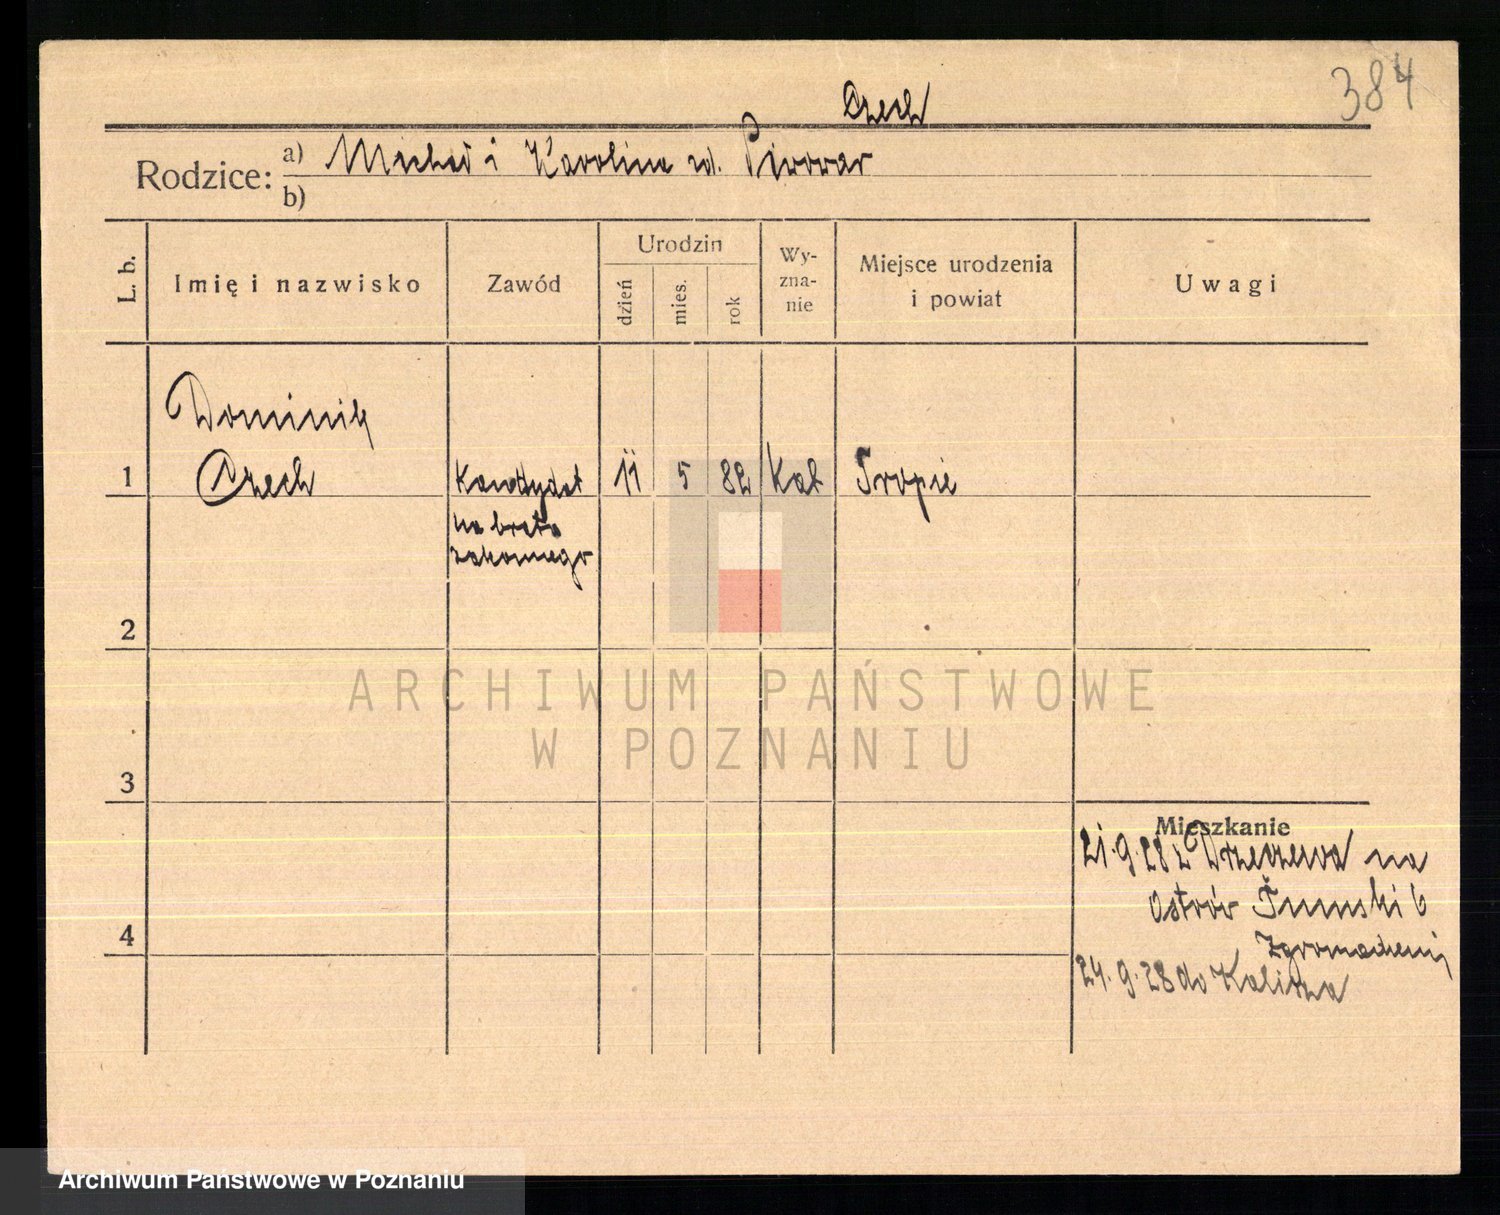 384
Czech
Rodzice: a) Michał i Karolina zd. Piwowar
b)
L. b.
Imię i nazwisko
Zawód
Urodzin
dzień
mies.
rok
Wy-
zna-
nie
Miejsce urodzenia
i powiat
Uwagi
Dominik
1 Czech Kandydat 11 5 82 Kat Tropie
na brata
zakonnego
2
ARCHIWUM PAŃSTWOWE
W POZNANIU
3
Mieszkanie
21.9.28 z Drzeczewa na
Ostrów Tumski 6
4
Zgromadzenie
24.9.28 do Kalisza
Archiwum Państwowe w Poznaniu